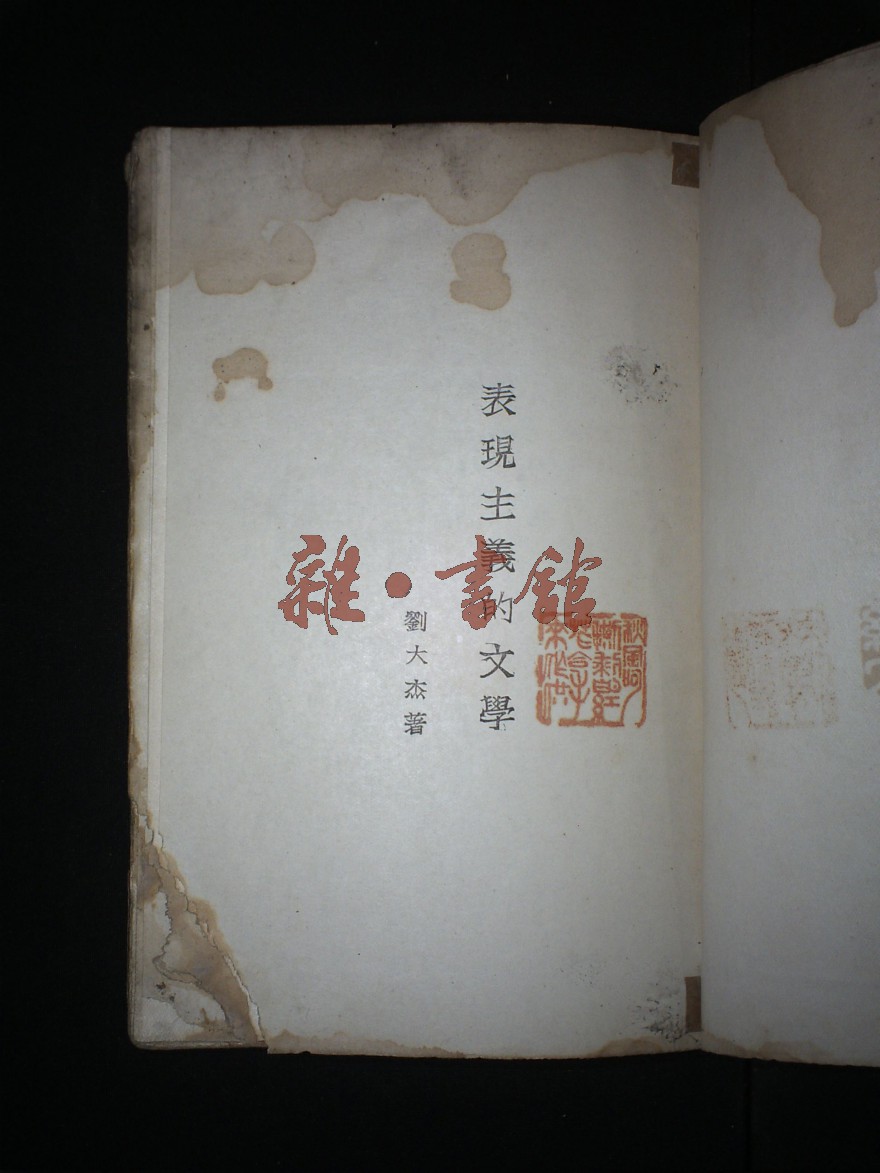 表現主義的文學
劉大杰著
雜·書館